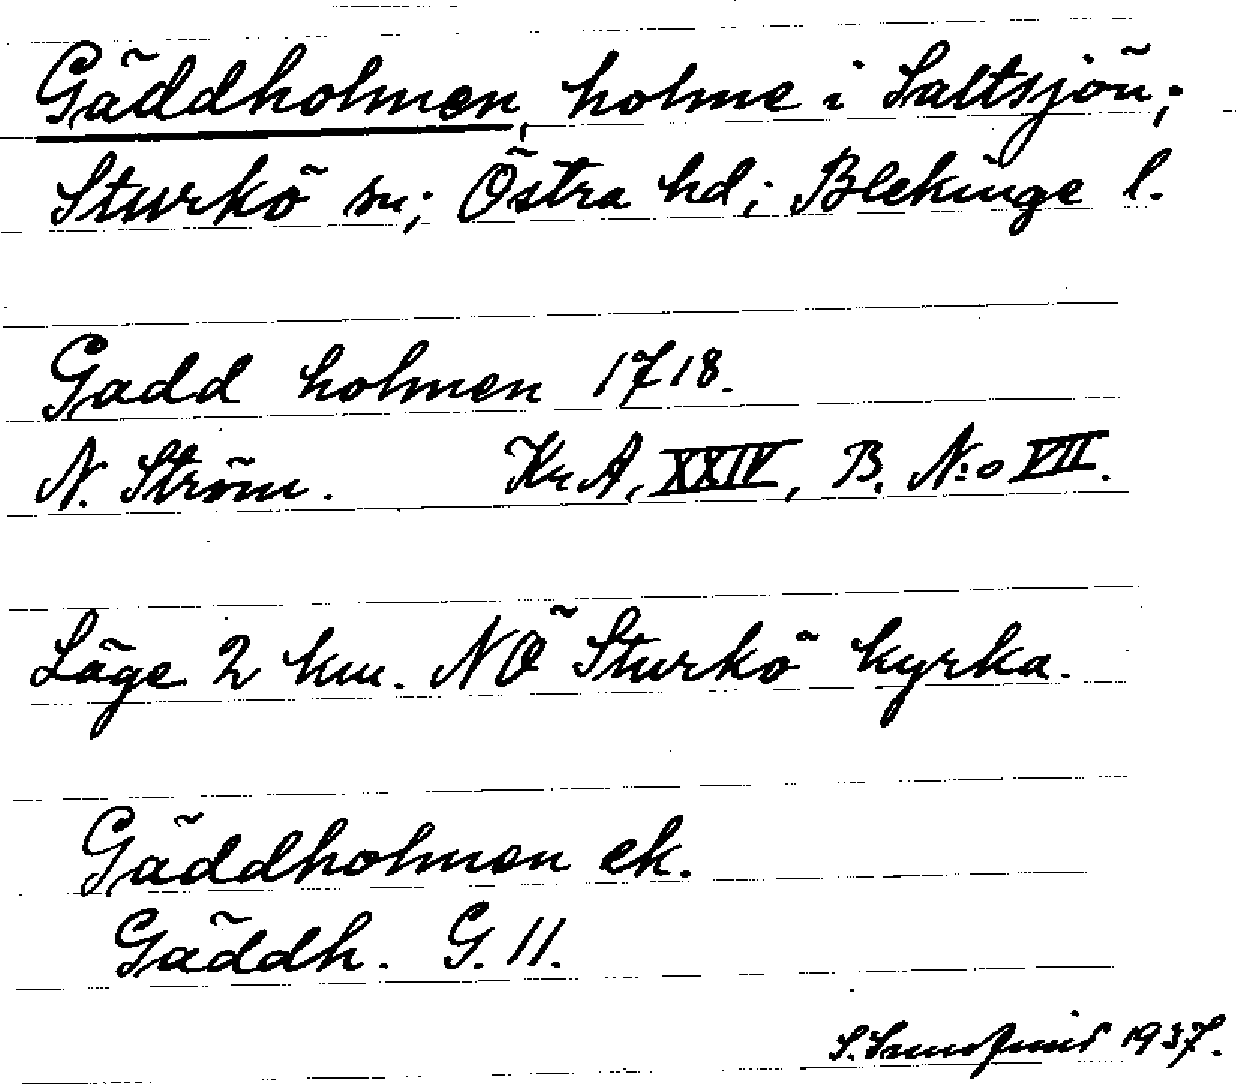 Gäddholmen, holme i Saltsjön;
Sturkö sn; Östra hd; Blekinge l.
Gadd holmen 1718.
N. Ström. Kr. A, XXIV, B. N:o VII.
Läge 2 km. NÖ Sturkö kyrka.
Gäddholmen ek.
Gäddh. G. 11.
S. 1937.